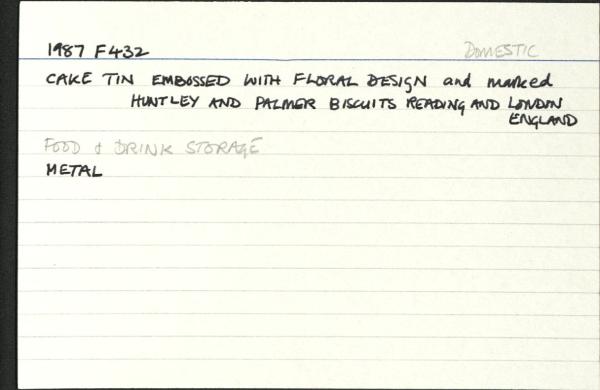 1987 F432 DOMESTIC
CAKE TIN EMBOSSED WITH FLORAL DESIGN and marked
HUNTLEY AND PALMER BISCUITS READING AND LONDON
ENGLAND
FOOD & DRINK STORAGE
METAL